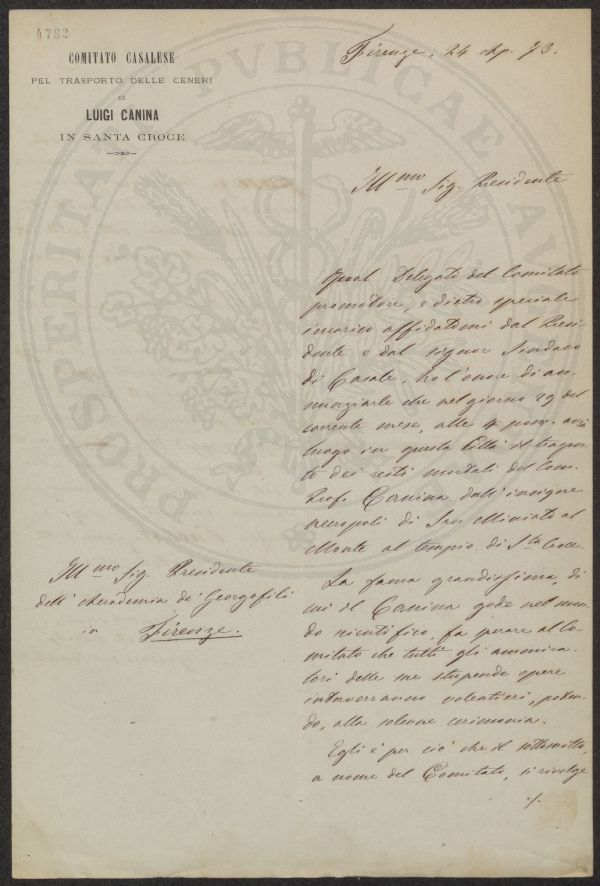 4782
COMITATO CASALESE
PEL TRASPORTO DELLE CENERI
DI
LUIGI CANINA
IN SANTA CROCE
Firenze, 24 73.
Ill.mo Sig. Presidente
Qual Delegato del Comitato
promotore, e dietro speciale
incarico affidatomi dal Presi-
dente e dal signor Sindaco
di Casale, ho l'onore di an-
nunziarle che nel giorno 29 del
corrente mese, alle 4 pom. avrà
luogo in questa Città il traspor-
to dei resti mortali del Com.
Prof. Canina dall'insigne
necropoli di San Miniato al
Monte al tempio di S.ta Croce.
La fama grandissima, di
cui il Canina gode nel mon-
do scientifico, fa sperare al Co-
mitato che tutti gli ammira-
tori delle sue stupende opere
interverranno volentieri, poten-
do, alla solenne cerimonia.
Egli è per ciò che il sottoscritto,
a nome del Comitato, si rivolge
./.
Ill.mo Sig. Presidente
dell'Accademia de' Georgofili
in
Firenze.
PROSPERITATI PVBLICAE AVGENDAE